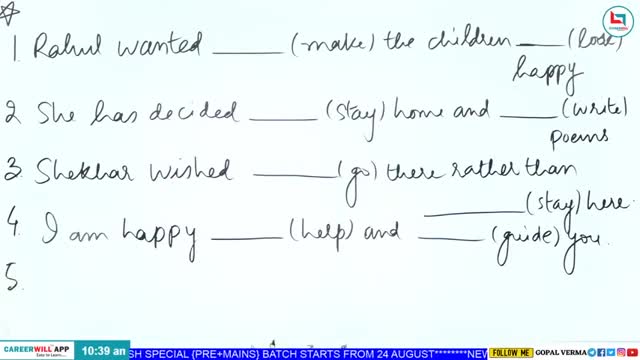 1. Rahul wanted ______ (make) the children ____ (look)
happy
2 She has decided ______ (stay) home and _____ (write)
poems
3. Shekhar wished _______ (go) there rather than
________ (stay) here.
4. I am happy ______ (help) and _____ (guide) you.
5.
CAREERWILL APP
10:39 am
SH SPECIAL {PRE+MAINS} BATCH STARTS FROM 24 AUGUST********NEW
FOLLOW ME
GOPAL VERMA